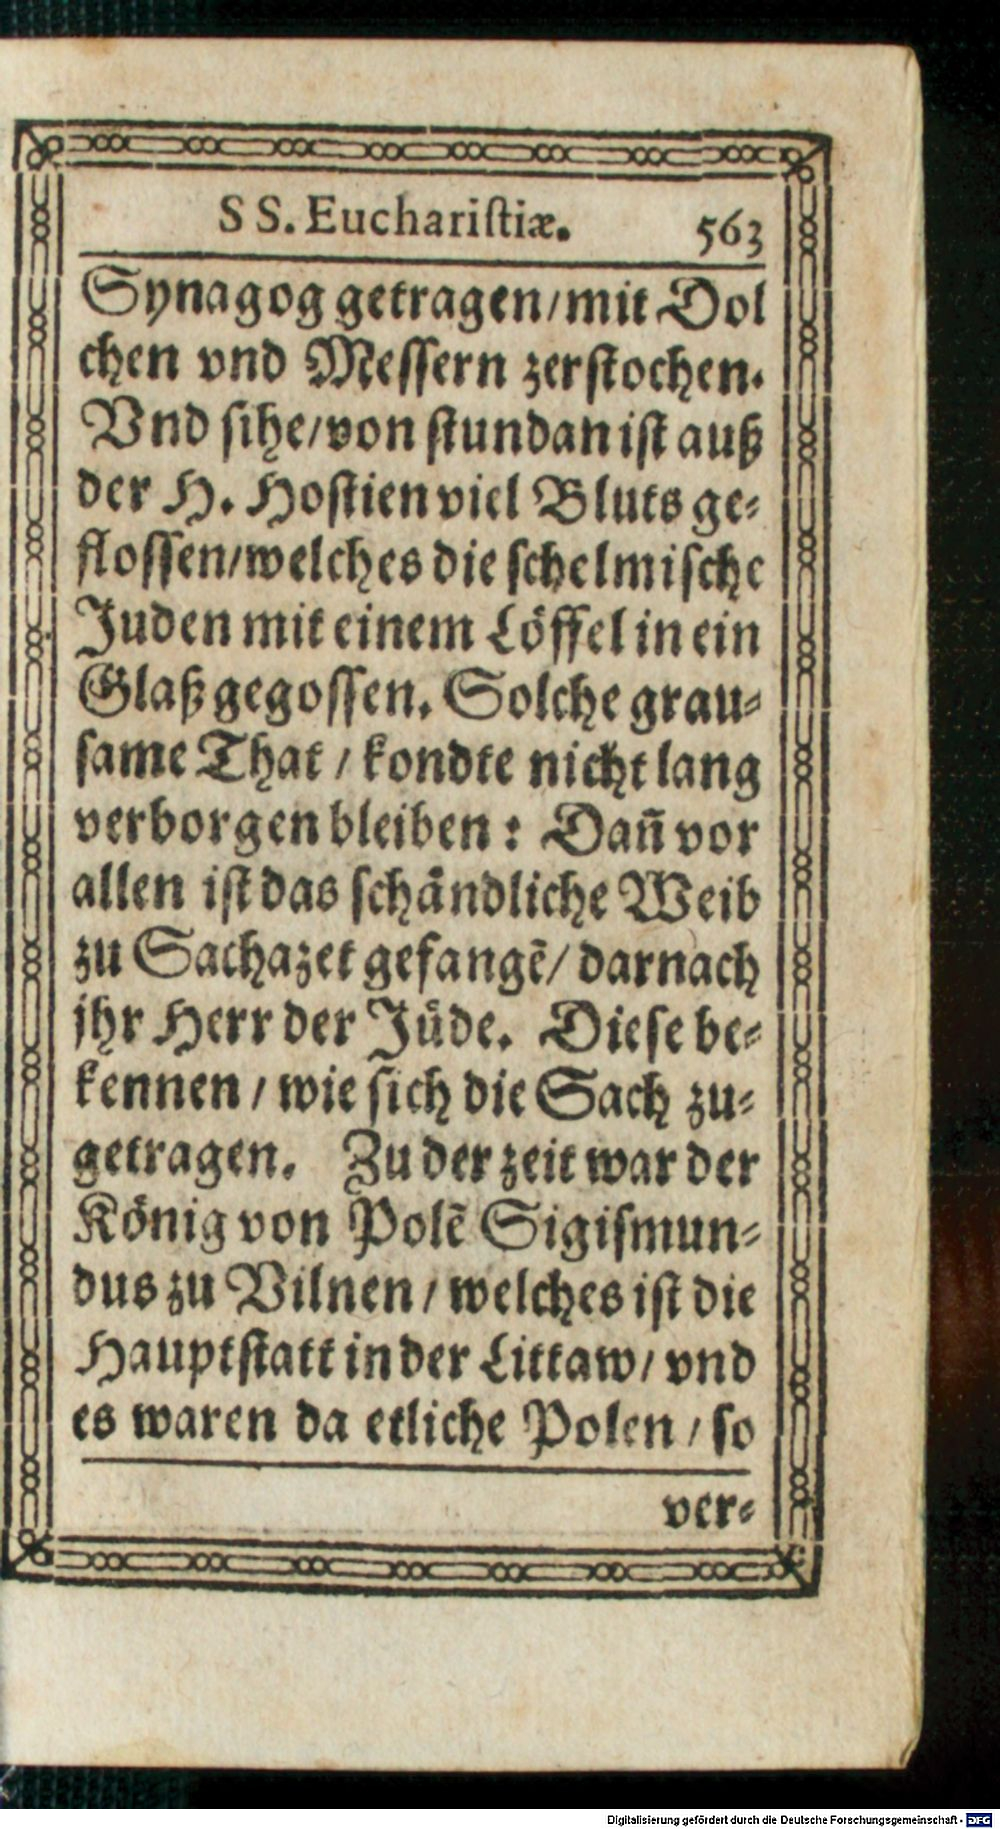 SS. Euchariſtiæ. 563
Synagog getragen/mit Dol
chen vnd Meſſern zerſtochen.
Vnd ſihe/von ſtundan iſt auß
der H. Hoſtien viel Bluts ge-
floſſen/welches die ſchelmiſche
Juden mit einem Löffel in ein
Glaß gegoſſen. Solche grau-
ſame That / kondte nicht lang
verborgen bleiben: Dañ vor
allen iſt das ſchändliche Weib
zu Sachazet gefangē/ darnach
jhr Herr der Jüde. Dieſe be-
kennen / wie ſich die Sach zu-
getragen. Zu der zeit war der
König von Polē Sigiſmun-
dus zu Vilnen / welches iſt die
Hauptſtatt in der Littaw/ vnd
es waren da etliche Polen / ſo
ver-
Digitalisierung gefördert durch die Deutsche Forschungsgemeinschaft - DFG